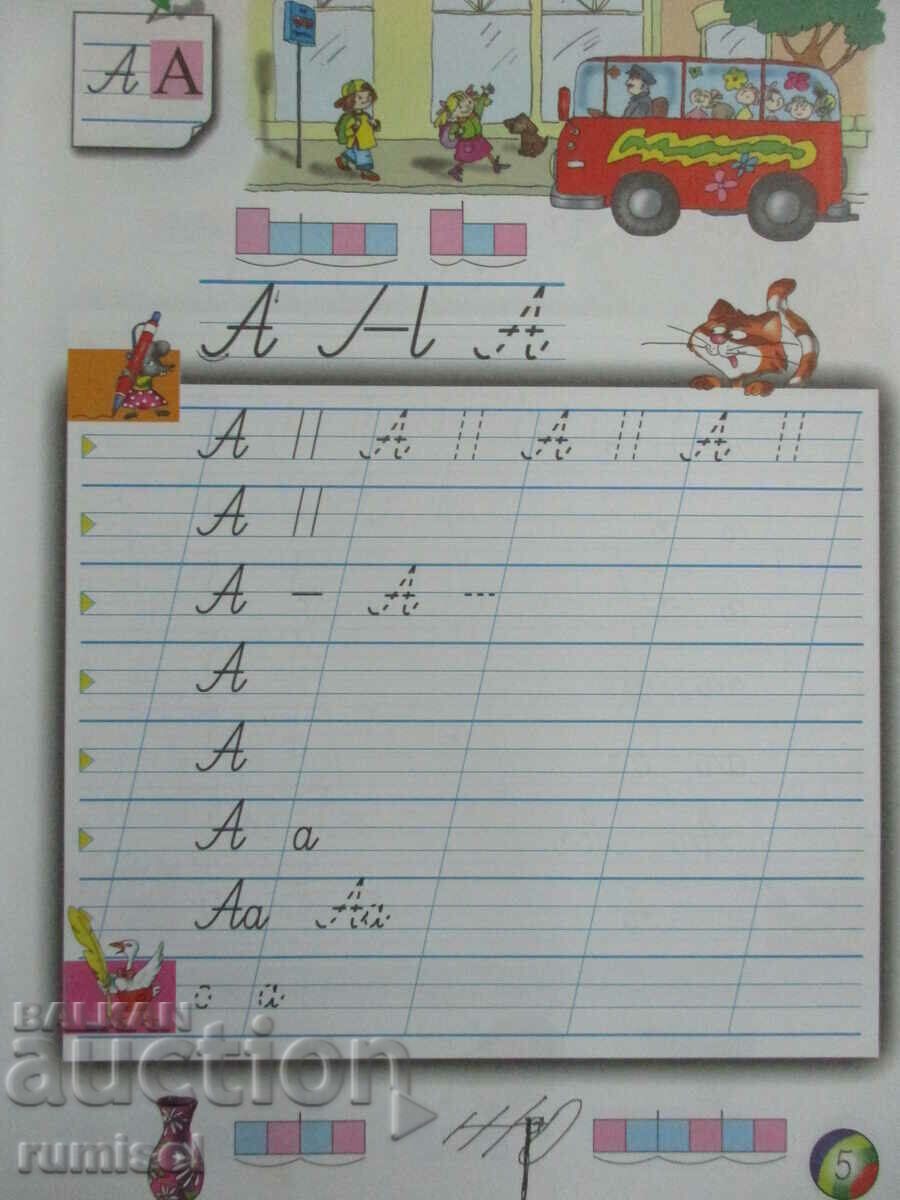 А А
А А
А А А А
А
А А
А
А
А а
Аа Аа
о а
BALKAN
auction
rumisel
5